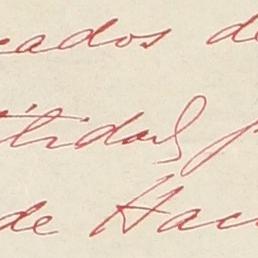 cados de
tidad, p
de Hac